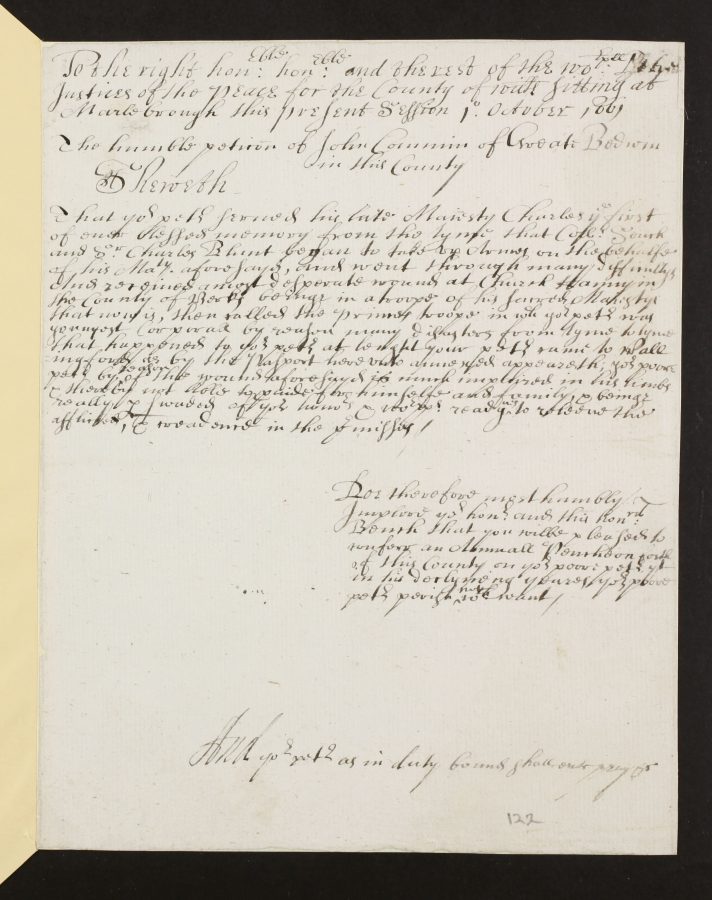 To the right hon:ble hon:ble and the rest of the wo:pll The
Justices of the Peace for the County of wilts sitting at
Marlebrough this present Session 1o. October 1661
The humble peticon of John Commin of Greate Bedwin
in this County
Sheweth
That yor petr served his late Maiesty Charles ye first
of ever blessed memory from the tyme that Coll
and Sr Charles Blunt began to take up Armes on the behalfe
of his Maty. aforesayd, and went through many difficultys
And received a most desperate wound at Church in
the County of Berks beinge in a troope of his sacred Maiestys
that now is, then called the Princes troope in wch yor petr was
youngest Corporall by reason many disasters from tyme to tyme
that happened to yor petr at lenght your petr came to wall
ingford as by the Pasport hereunto annexed appeareth, yor poore
petr by reason of the wound aforesayd is much impayred in his limbs
& thereby not able to provide for himselfe and family, & beinge
really pswaded of yor honrs & worpps readynes to releeve the
afflicted, & creadence in the pmisses /
Doe therefore most humbly
Implore yor honrs and this honrble
Bench that you wilbe pleased to
conferr an Annuall Pencheon forth
of this County on yor poore petr yt
in his declyneng yeares yor poore
petr perish not wth want /
And yor petr as in duty bound shall ever pray &c
122